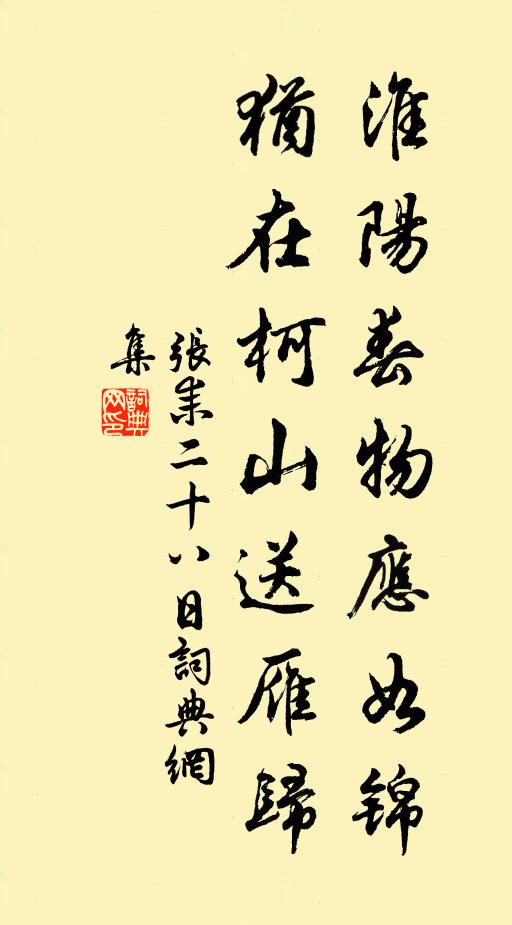 淮陽春物應如錦
猶在柯山送雁歸
張耒二十八日詞典網
集
詞典
网印